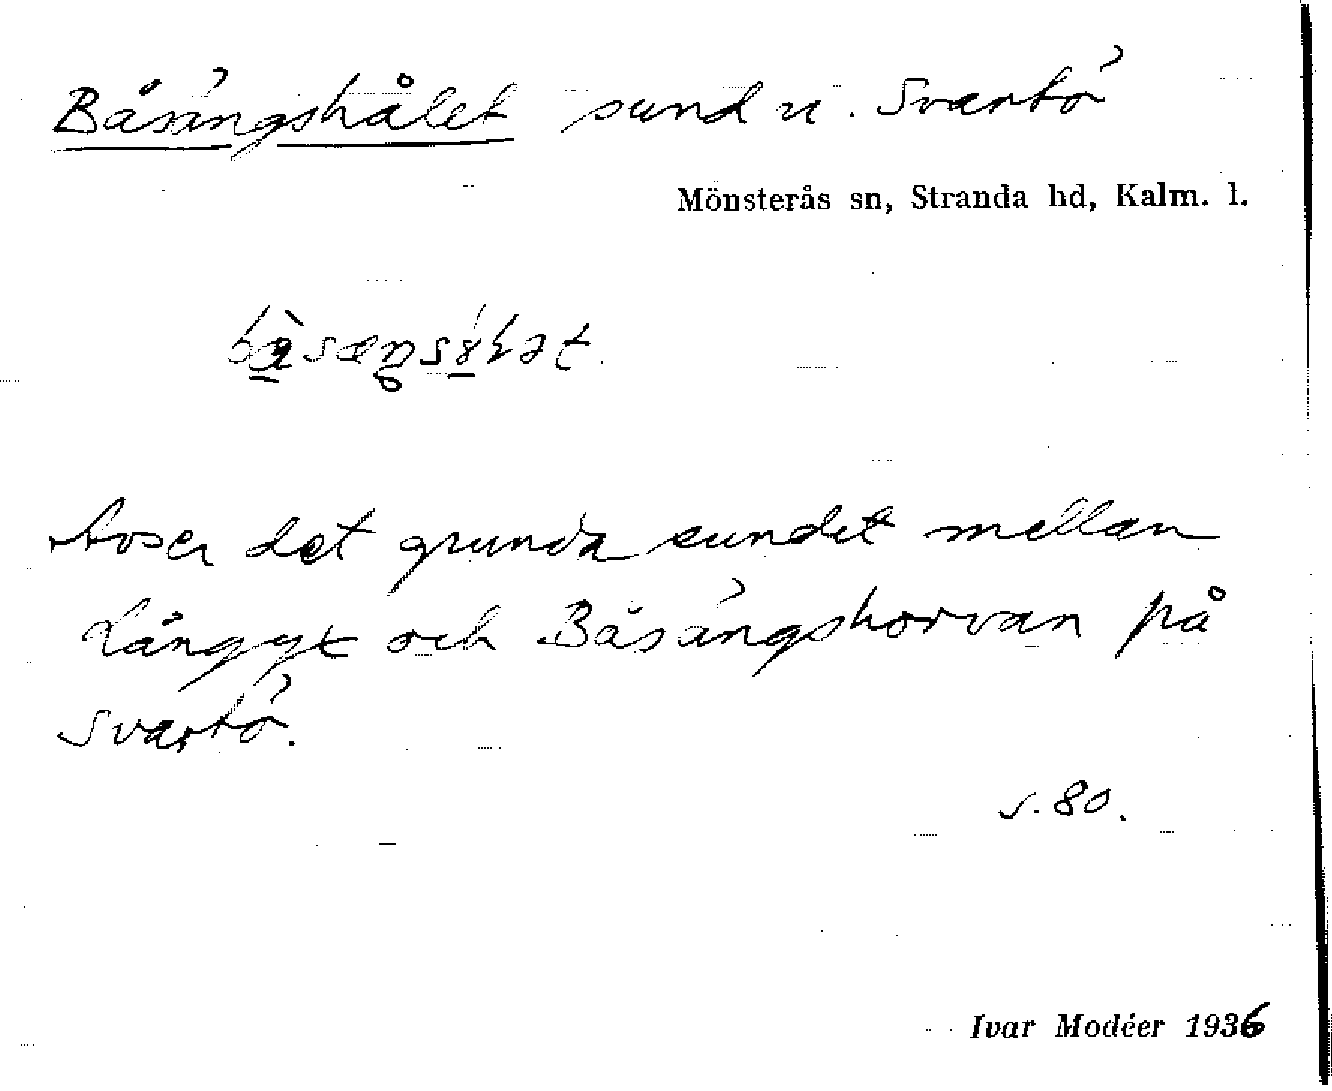 Båsängshålet sund u. Svartö
Mönsterås sn, Stranda hd, Kalm. l.
Avser det grunda sundet mellan
Långgyt och Båsängshorvan på
Svartö.
s. 80.
Ivar Modéer 1936